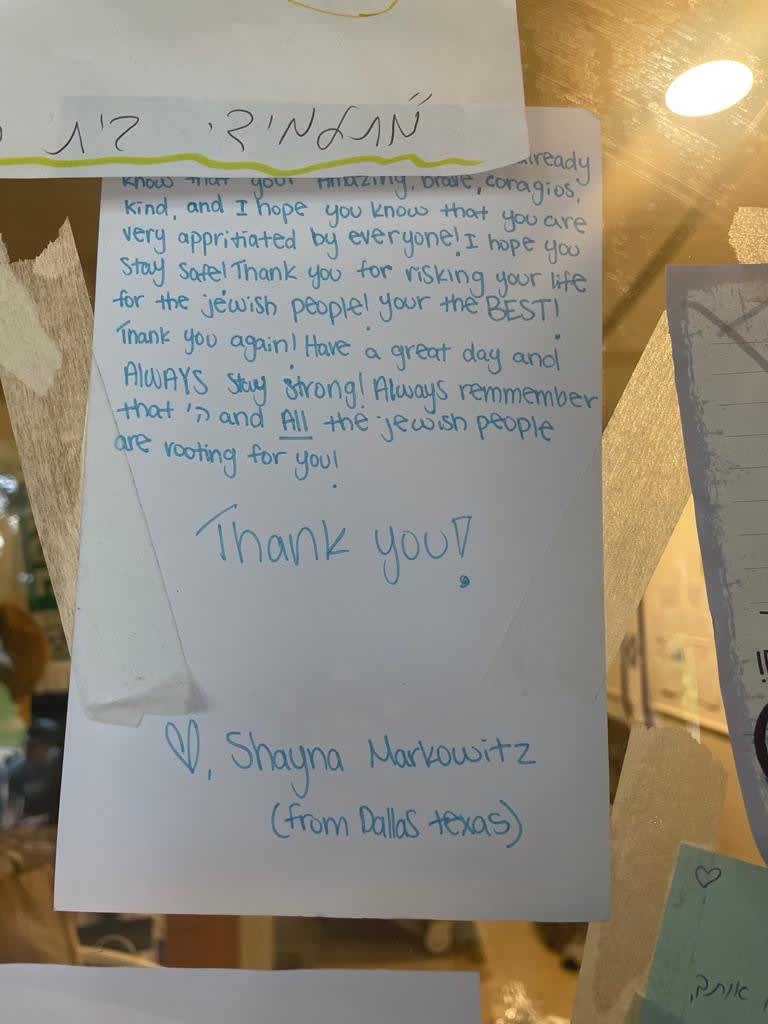 מתלמידי בית
already
know that your Amazing, brave, coragios,
kind, and I hope you know that you are
very appritiated by everyone! I hope you
stay safe! Thank you for risking your life
for the jewish people! your the BEST!
Thank you again! Have a great day and
ALWAYS stay strong! Always remmember
that ה' and All the jewish people
are rooting for you!
Thank you!
♡, Shayna Markowitz
(from Dallas texas)
אותך,